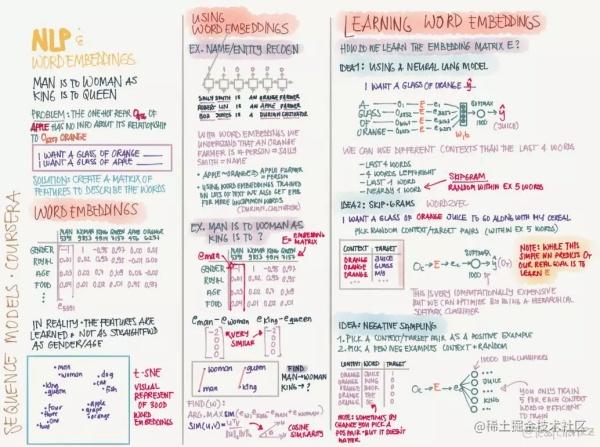 SEQUENCE MODELS: COURSERA
NLP &
WORD EMBEDDINGS
MAN IS TO WOMAN AS
KING IS TO QUEEN
PROBLEM: THE ONE-HOT REPR
APPLE HAS NO INFO ABOUT ITS RELATIONSHIP
TO ORANGE
I WANT A GLASS OF ORANGE ____
I WANT A GLASS OF APPLE ____
SOLUTION: CREATE A MATRIX OF
FEATURES TO DESCRIBE THE WORDS
WORD EMBEDDINGS
MAN WOMAN KING QUEEN APPLE ORANGE
5391 9853 4914 7157 456 6257
GENDER
ROYAL
AGE
FOOD
e5391
IN REALITY - THE FEATURES ARE
LEARNED & NOT AS STRAIGHTFWD
AS GENDER/AGE
man
woman
dog
cat
fish
king
queen
four
three
one
two
apple
grape
orange
t-SNE
VISUAL
REPRESENT
OF 300D
WORD
EMBEDDINGS
USING
WORD EMBEDDINGS
EX. NAME/ENTITY RECOGN
SALLY SMITH IS AN ORANGE FARMER
ROBERT LIN IS AN APPLE FARMER
BOB JONES IS A DURIAN CULTIVATOR
WITH WORD EMBEDDINGS WE
UNDERSTAND THAT AN ORANGE
FARMER IS A PERSON → SALLY
SMITH = NAME
APPLE ~ ORANGE → APPLE FARMER
= PERSON
USING WORD EMBEDDINGS TRAINED
ON LOTS OF TEXT WE ALSO GET EMB
FOR MORE UNCOMMON WORDS
(DURIAN, CULTIVATOR)
EX. MAN IS TO WOMAN AS
KING IS TO ?
E = EMBEDDING
MATRIX
e man
MAN WOMAN KING QUEEN
5391 9853 4914 7157
GENDER
ROYAL
AGE
FOOD
e man - e woman e king - e queen
VERY
SIMILAR
woman
man
queen
king
FIND
MAN→WOMAN
KING→ ?
FIND(W):
COSINE
SIMILARITY
LEARNING WORD EMBEDDINGS
HOW DO WE LEARN THE EMBEDDING MATRIX E?
IDEA 1: USING A NEURAL LANG MODEL
I WANT A GLASS OF ORANGE ŷ
A
GLASS
OF
ORANGE
SOFTMAX
ŷ
(JUICE)
WE CAN USE DIFFERENT CONTEXTS THAN THE LAST 4 WORDS
- LAST 4 WORDS
- 4 WORDS LEFT + RIGHT
- LAST 1 WORD
- NEARBY 1 WORD
SKIPGRAM
RANDOM WITHIN EX 5 WORDS
IDEA 2: SKIP-GRAMS WORD2VEC
I WANT A GLASS OF ORANGE JUICE TO GO ALONG WITH MY CEREAL
PICK RANDOM CONTEXT/TARGET PAIRS (WITHIN EX 5 WORDS)
CONTEXT TARGET
ORANGE JUICE
ORANGE GLASS
ORANGE MY
SOFTMAX
NOTE: WHILE THIS
SIMPLE NN PREDICTS
OUR REAL GOAL IS TO
LEARN E
THIS IS VERY COMPUTATIONALLY EXPENSIVE
BUT WE CAN OPTIMIZE BY USING A HIERARCHICAL
SOFTMAX CLASSIFIER
IDEA: NEGATIVE SAMPLING
1. PICK A CONTEXT/TARGET PAIR AS A POSITIVE EXAMPLE
2. PICK A FEW NEG EXAMPLES CONTEXT + RANDOM
CONTEXT WORD TARGET
ORANGE JUICE 1
ORANGE KING 0
ORANGE BOOK 0
ORANGE THE 0
ORANGE OF 0
JUICE
KING
YOU ONLY TRAIN
5 FOR EACH CONTEXT
WORD = EFFICIENT
TO TRAIN
NOTE: SOMETIMES BY
CHANCE YOU PICK A
POS PAIR - BUT IT DOESN'T
MATTER
@稀土掘金技术社区